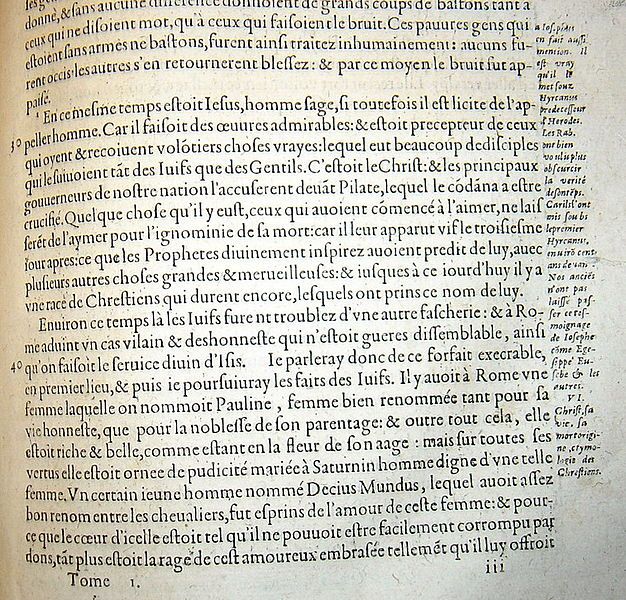 donné, & sans aucune difference donnoient de grands coups de bastons tant a
ceux qui ne disoient mot, qu'à ceux qui faisoient le bruit. Ces pauures gens qui
estoient sans armes ne bastons, furent ainsi traitez inhumainement: aucuns fu-
rent occis: les autres s'en retournerent blessez: & par ce moyen le bruit fut ap-
paisé.
En ce mesme temps estoit Iesus, homme sage, si toutefois il est licite de l'ap-
peller homme. Car il faisoit des œuures admirables: & estoit precepteur de ceux
30 qui oyent & reçoiuent volõtiers choses vrayes: lequel eut beaucoup de disciples
qui le suiuoient tãt des Iuifs que des Gentils. C'estoit le Christ: & les principaux
gouuerneurs de nostre nation l'accuserent deuãt Pilate, lequel le cõdãna a estre
crucifié. Quelque chose qu'il y eust, ceux qui auoient cõmencé à l'aimer, ne lais
serẽt de l'aymer pour l'ignominie de sa mort: car il leur apparut vif le troisiesme
iour apres: ce que les Prophetes diuinement inspirez auoient predit de luy, auec
plusieurs autres choses grandes & merueilleuses: & iusques à ce iourd'huy il y a
vne race de Chrestiens qui durent encore, lesquels ont prins ce nom de luy.
Enuiron ce temps là les Iuifs furent troublez d'vne autre fascherie: & à Ro-
me aduint vn cas vilain & deshonneste qui n'estoit gueres dissemblable, ainsi
40 qu'on faisoit le seruice diuin d'Isis. Ie parleray donc de ce forfait execrable,
en premier lieu, & puis ie poursuiuray les faits des Iuifs. Il y auoit à Rome vne
femme laquelle on nommoit Pauline, femme bien renommée tant pour sa
vie honneste, que pour la noblesse de son parentage: & outre tout cela, elle
estoit riche & belle, comme estant en la fleur de son aage: mais sur toutes ses
vertus elle estoit ornee de pudicité mariée à Saturnin homme digne d'vne telle
femme. Vn certain ieune homme nommé Decius Mundus, lequel auoit assez
bon renom entre les cheualiers, fut esprins de l'amour de ceste femme: & pour-
ce que le cœur d'icelle estoit tel qu'il ne pouuoit estre facilement corrompu par
dons, tãt plus estoit la rage de cest amoureux embrasée tellemẽt qu'il luy offroit
Tome 1. iii
a Iosephus
en fait aussi
mention. Il
est vray
qu'il le
met souz
Hyrcanus
predecesseur
d'Herodes.
Les Rab.
ont bien
voulu plus
obscurcir
la verité
des
Car ils l'ont
mis soubs
le premier
Hyrcanus,
enuirõ cent
ans deuant.
Nos anciẽs
n'ont pas
laissé pas-
ser ce tes-
moignage
de Iosephe
cõme Ege-
sippe Eu-
sebe & les
autres.
VI.
Christ, sa
vie, sa
mort origi-
ne, etymo-
logie des
Chrestiens.